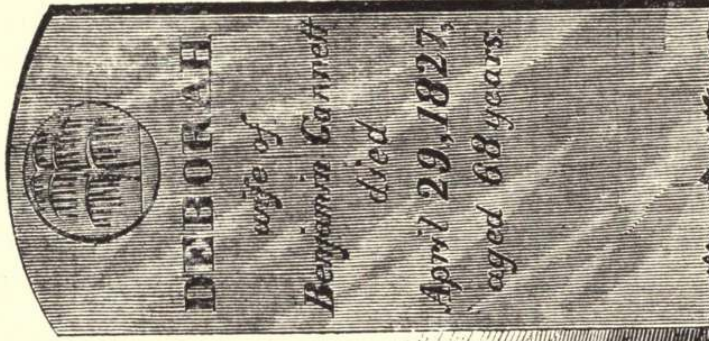 DEBORAH
wife of
Benjamin Gannett
died
April 29, 1827,
aged 68 years.